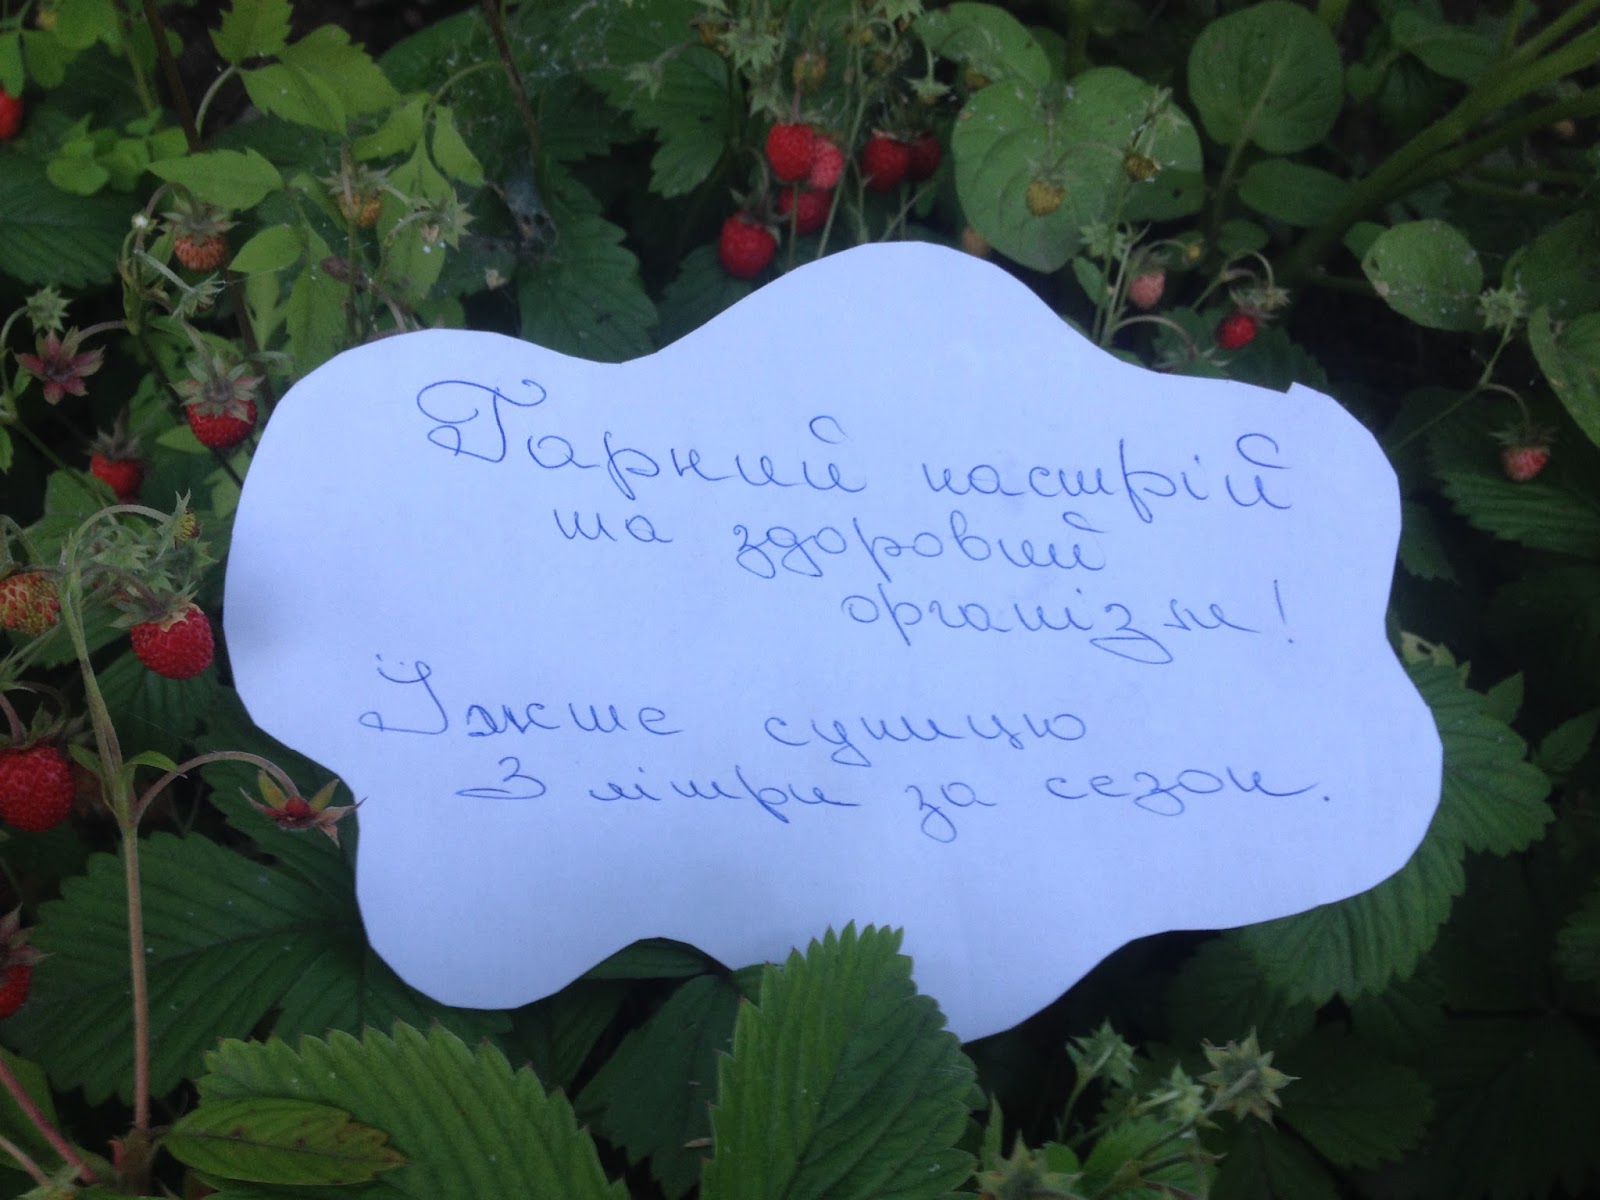 Гарний настрій
та здоровий
організм!
Їжте суницю
3 літри за сезон.